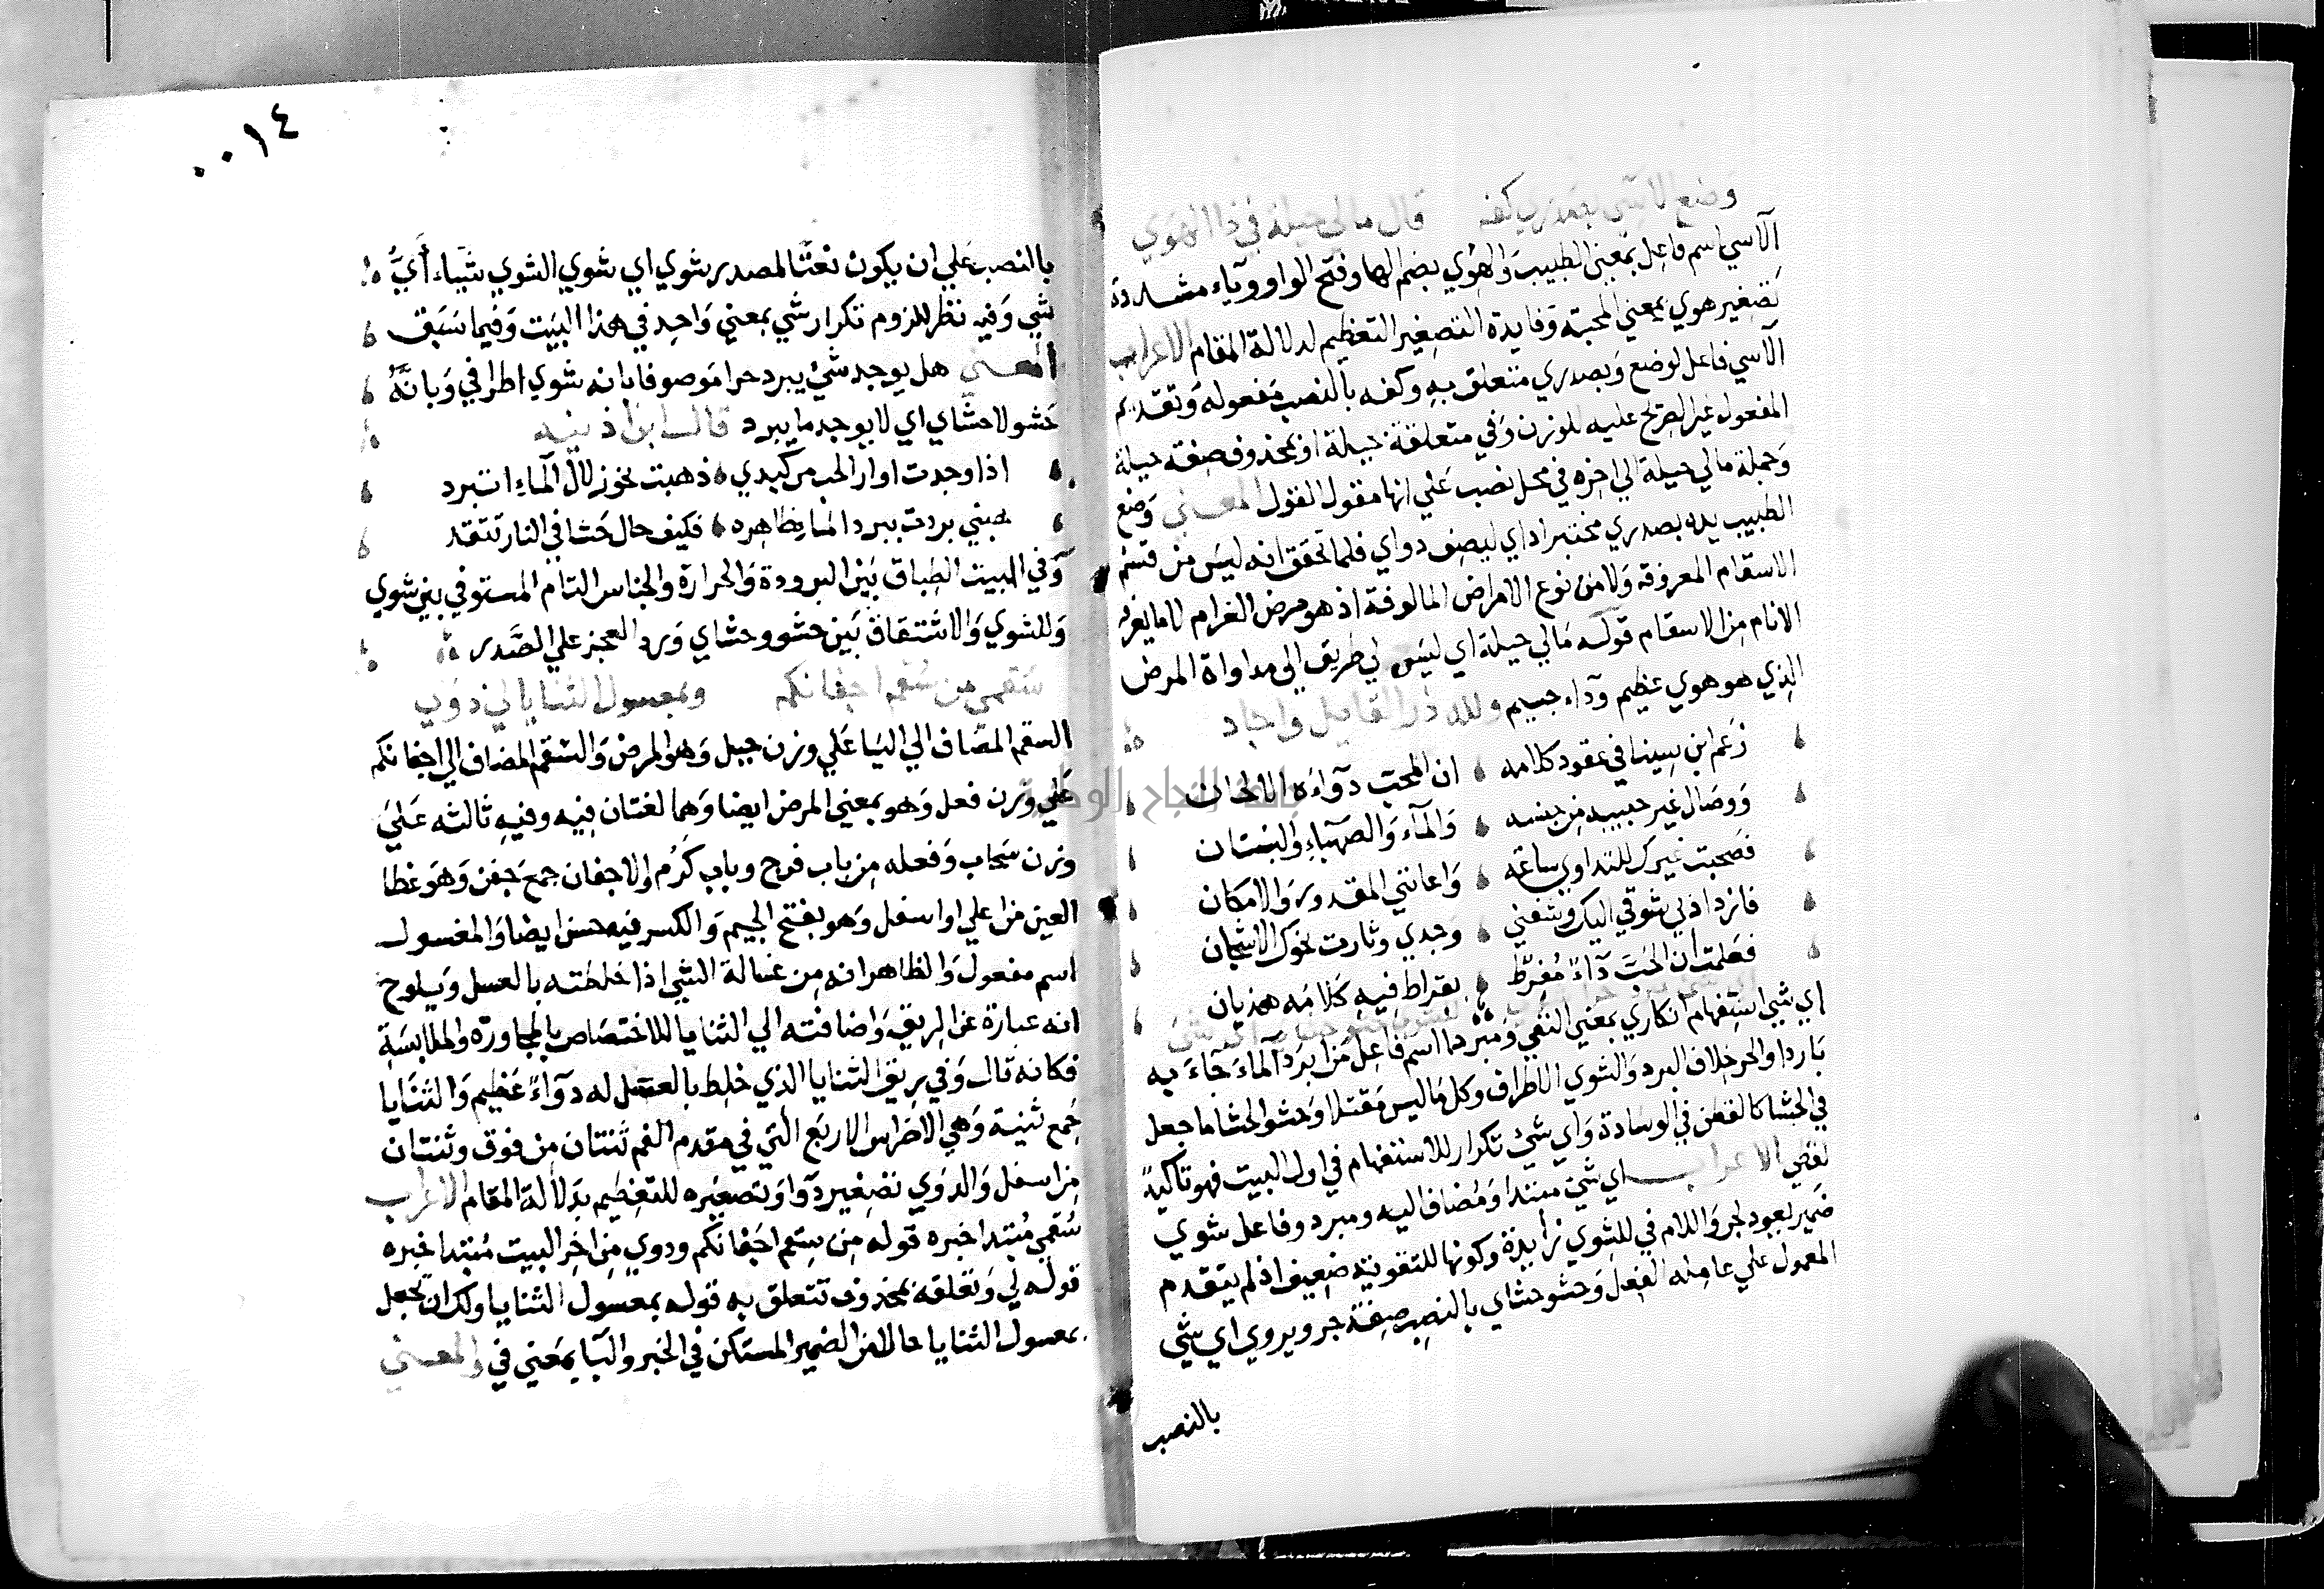 وضع الاسي بصدري كفه قال مالي حيلة في ذا الهوي
الآسي اسم فاعل بمعني الطبيب والهوي بضم الها وفتح الواو وياء مشددة
تصغير هوي بمعني المحبة وفايدة التصغير التعظيم لدلالة المقام الاعراب
الآسي فاعل لوضع وبصدري متعلق به وكفه بالنصب مفعوله وتقديم
المفعول غير الصريح عليه للوزن وفي متعلقة بحيلة او بمحذوف صفة حيلة
وجملة مالي حيلة الي اخره في محل نصب علي انها مقول القول المعني وضع
الطبيب يده بصدري مختبرا داي ليصف دواي فلما تحقق انه ليس من قسم
الاسقام المعروفه ولا من نوع الامراض المالوفة اذ هو مرض الغرام لا ما يعرفه
الانام من الاسقام قوله مالي حيلة اي ليس لي طريق الي مداواة المرض
الذي هو هوي عظيم وداء جسيم ولله در القايل واجاد
زعم ابن سينا في عقود كلامه ان المحب دوآءه الالحان
ووصال غير حبيبه من جنسه والمآء والصهباء والبستان
فصحبت غيرك للتداوي ساعة واعانني المقدور والامكان
فازداد لي شوقي اليك وشفني وجدي وثارت نحوك الاشجان
فعلمت ان الحب دآء مفرط بقراط فيه كلامه هذيان
اي شي استفهام انكاري بمعني النفي ومبرد اسم فاعل من ابرد الماء جاء به
باردا والحر خلاف البرد والشوي الاطراف وكل ما ليس مقتلا وحشو الحشا ما جعل
في الحشا كالقطن في الوسادة واي شي تكرار للاستفهام في اول البيت فهو تاكيد
لفظي الاعراب اي شي مبتدا ومضاف اليه ومبرد وفاعل شوي
ضمير يعود لحر واللام في للشوي زايدة وكونها للتقوية ضعيف اذ لم يتقدم
المعمول علي عامله الفعل وحشو حشاي بالنصب صفة حر ويروي اي شي
بالنصب
٠٠١٤
بالنصب علي ان يكون نعتا لمصدر شوي اي شوي الشوي شيا اي
شي وفيه نظر للزوم تكرار شي بمعني واحد في هذا البيت وفيما سبق
المعني هل يوجد شي يبرد حرا موصوفا بانه شوي اطرافي وبانه
حشو لاحشاي اي لا يوجد ما يبرد قال ابن اذينه
اذا وجدت اوار الحب من كبدي ذهبت نحو زلال المآء اتبرد
هبني بردت ببرد الما ظاهره فكيف حال حشا في النار تتقد
وفي البيت الطباق بين البرودة والحرارة والجناس التام المستوفي بين شوي
وللشوي والاشتقاق بين حشو وحشاي ورد العجز علي الصدر
سقمي من سقم اجفانكم وبمعسول الثنايا لي دوي
السقم المضاف الي اليا علي وزن جبل وهو المرض والسقم المضاف الي اجفانكم
علي وزن فعل وهو بمعني المرض ايضا وهما لغتان فيه وفيه ثالثه علي
وزن سحاب وفعله من باب فرح وباب كرم والاجفان جمع جفن وهو غطا
العين من اعلي او اسفل وهو بفتح الجيم والكسر فيه حسن ايضا والمعسول
اسم مفعول والظاهر انه من عسالة الشي اذا خلطته بالعسل ويلوح
انه عبارة عن الريق واضافته الي الثنايا للاختصاص بالمجاورة والملابسة
فكانه قال وفي ريق الثنايا الذي خلط بالعسل له دوآء عظيم والثنايا
جمع ثنية وهي الاضراس الاربع التي في مقدم الفم ثنتان من فوق وثنتان
من اسفل والدوي تصغير دوا وتصغيره للتعظيم بدلالة المقام الاعراب
سقمي مبتدا خبره قوله من سقم اجفانكم ودوي من اخر البيت مبتدا خبره
قوله لي وتعلقه بمحذوف تتعلق به قوله بمعسول الثنايا ولك ان تجعل
بمعسول الثنايا حالا من الضمير المستكن في الخبر والبا بمعني في والمعني